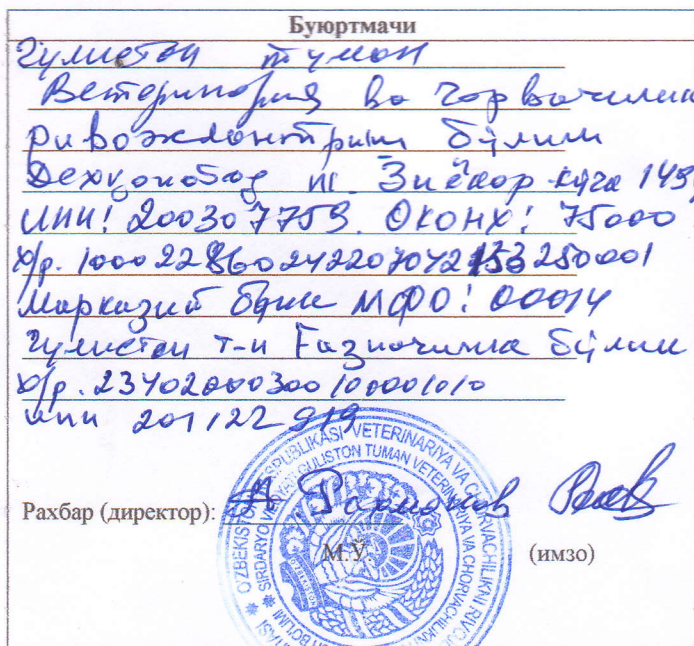 Буюртмачи
Гулистон туман
Ветеринария ва чорвачилик
ривожлантриш бўлими
Деххонобод ш. Зиёкор кўча 149
ИНН: 200307759. ОКОНХ: 75000
х/р. 100022860242207042153250001
Марказий банк МФО: 00014
Гулистон т-н Ғазначилик бўлим
х/р. 23402000300100001010
инн 201122919
Рахбар (директор): А Рахмонов
М.Ў. (имзо)
O'ZBEKISTON RESPUBLIKASI VETERINARIYA VA CHORVACHILIKNI
SIRDARYO VILOYATI GULISTON TUMAN VETERINARIYA VA CHORVACHILIKNI